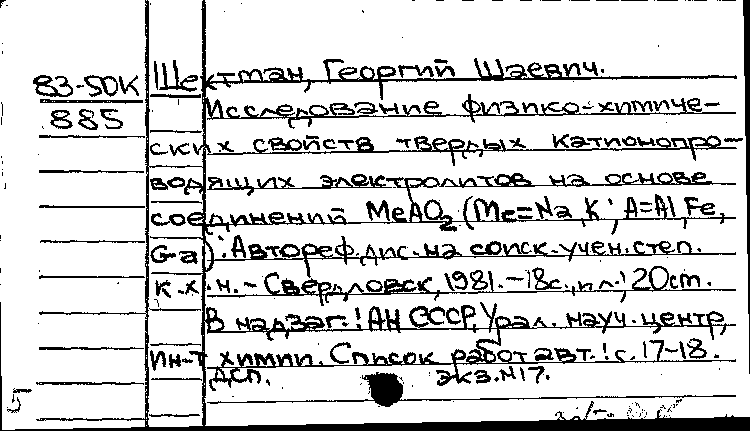 83-50К Шехтман, Георгий Шаевич.
885 Исследование физико-химиче-
ских свойств твердых катионопро-
водящих электролитов на основе
соединений MeAO2 (Me=Na, K; A=Al, Fe,
Ga): Автореф. дис. на соиск. учен. степ.
к.х.н. - Свердловск, 1981. - 18с., ил.; 20см.
В надзаг.: АН СССР, Урал. науч. центр,
Ин-т химии. Список работ авт.: с. 17-18.
ДСП. экз. №17.
5